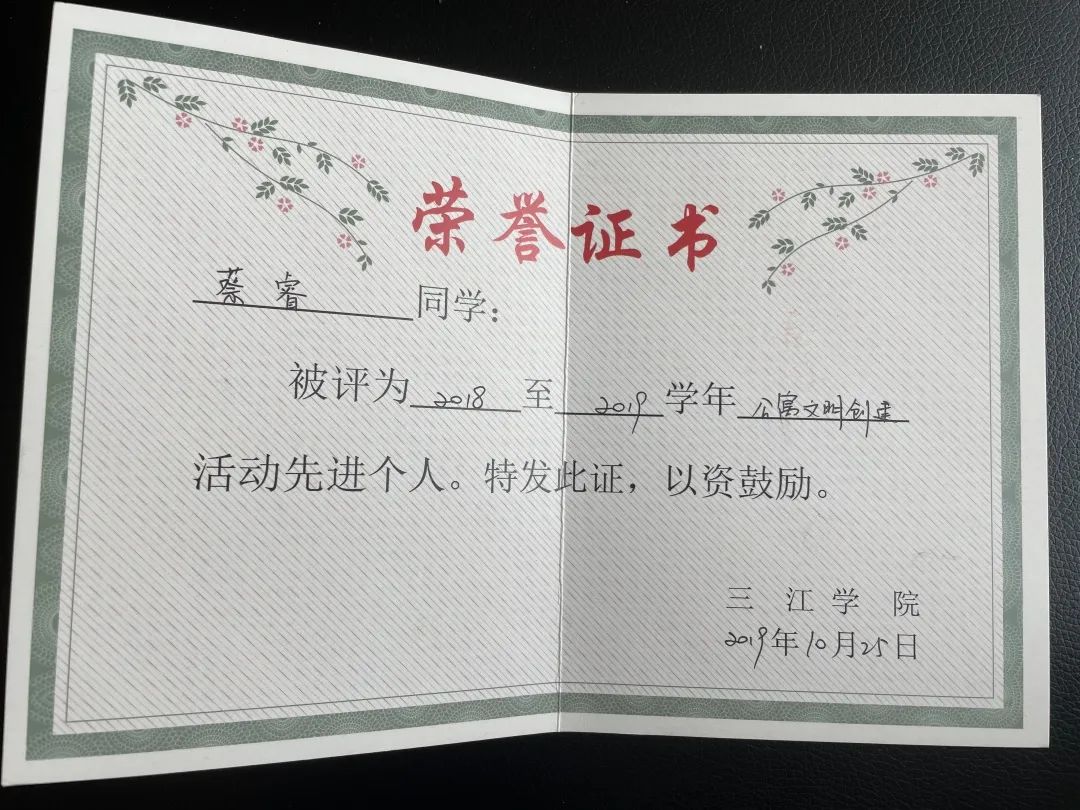 荣誉证书
蔡睿同学：
被评为2018至2019学年公寓文明创建
活动先进个人。特发此证，以资鼓励。
三江学院
2019年10月25日